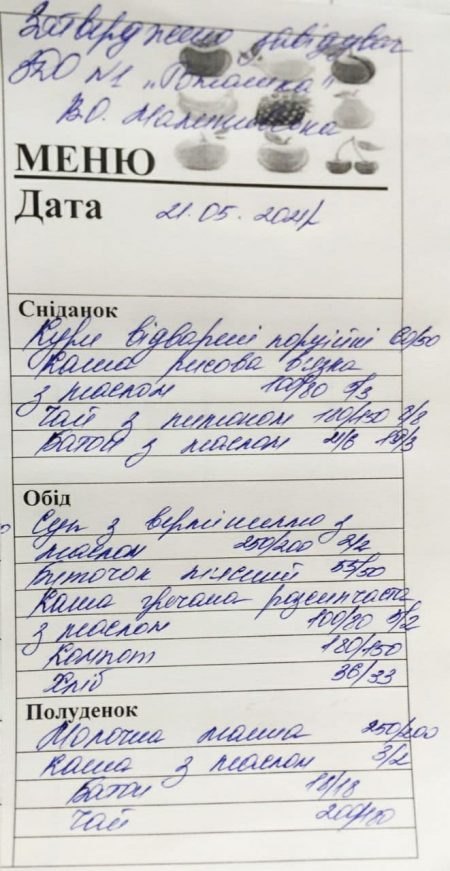 Затверджено завідувач
ЗДО №1 „Ромашка"
В.О.
МЕНЮ
Дата 21.05.2021р
Сніданок
Кури відварені порційні 60/50
Каша рисова в'язка
з маслом 100/80 5/3
Чай з лимоном 180/150 8/8
Батон з маслом 21/6 18/3
Обід
Суп з вермішеллю з
маслом 250/200 2/2
Биточок 55/50
Каша гречана розсипчаста
з маслом 100/80 5/2
Компот 180/150
Хліб 36/33
Полуденок
Молочна манна 250/200
каша з маслом 3/2
Батон 18/18
Чай 200/180